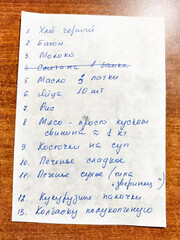 1. Хлеб черный
2. Батон
3. Молоко
4. Сметана 1 банка
5. Масло 3 пачки
6. Яйца 10 шт
7. Рис
8. Мясо - просто куском
свинина ≈ 1 кг
9. Косточки на суп
10. Печенье сладкое
11. Печенье сухое (типа
"зверинец")
12. Кукурузные палочки
13. Колбаску полукопченую